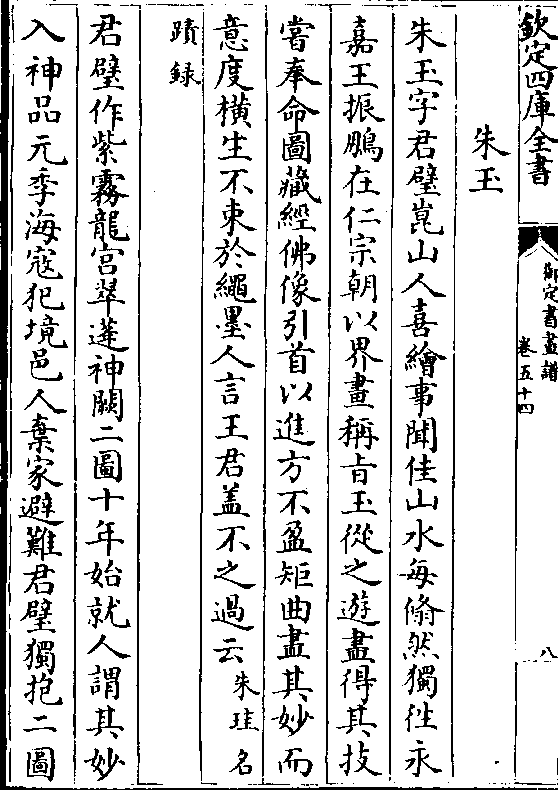 欽定四庫全書
御定書畫譜
卷五十四
八
朱玉
朱玉字君璧崑山人喜繪事聞佳山水每翛然獨徃永
嘉王振鵬在仁宗朝以界畫稱旨玉從之遊盡得其技
嘗奉命圖藏經佛像引首以進方不盈矩曲盡其妙而
意度横生不束於繩墨人言王君盖不之過云朱珪名
蹟録
君璧作紫霧龍宫翠蓬神闕二圖十年始就人謂其妙
入神品元季海寇犯境邑人棄家避難君璧獨抱二圖